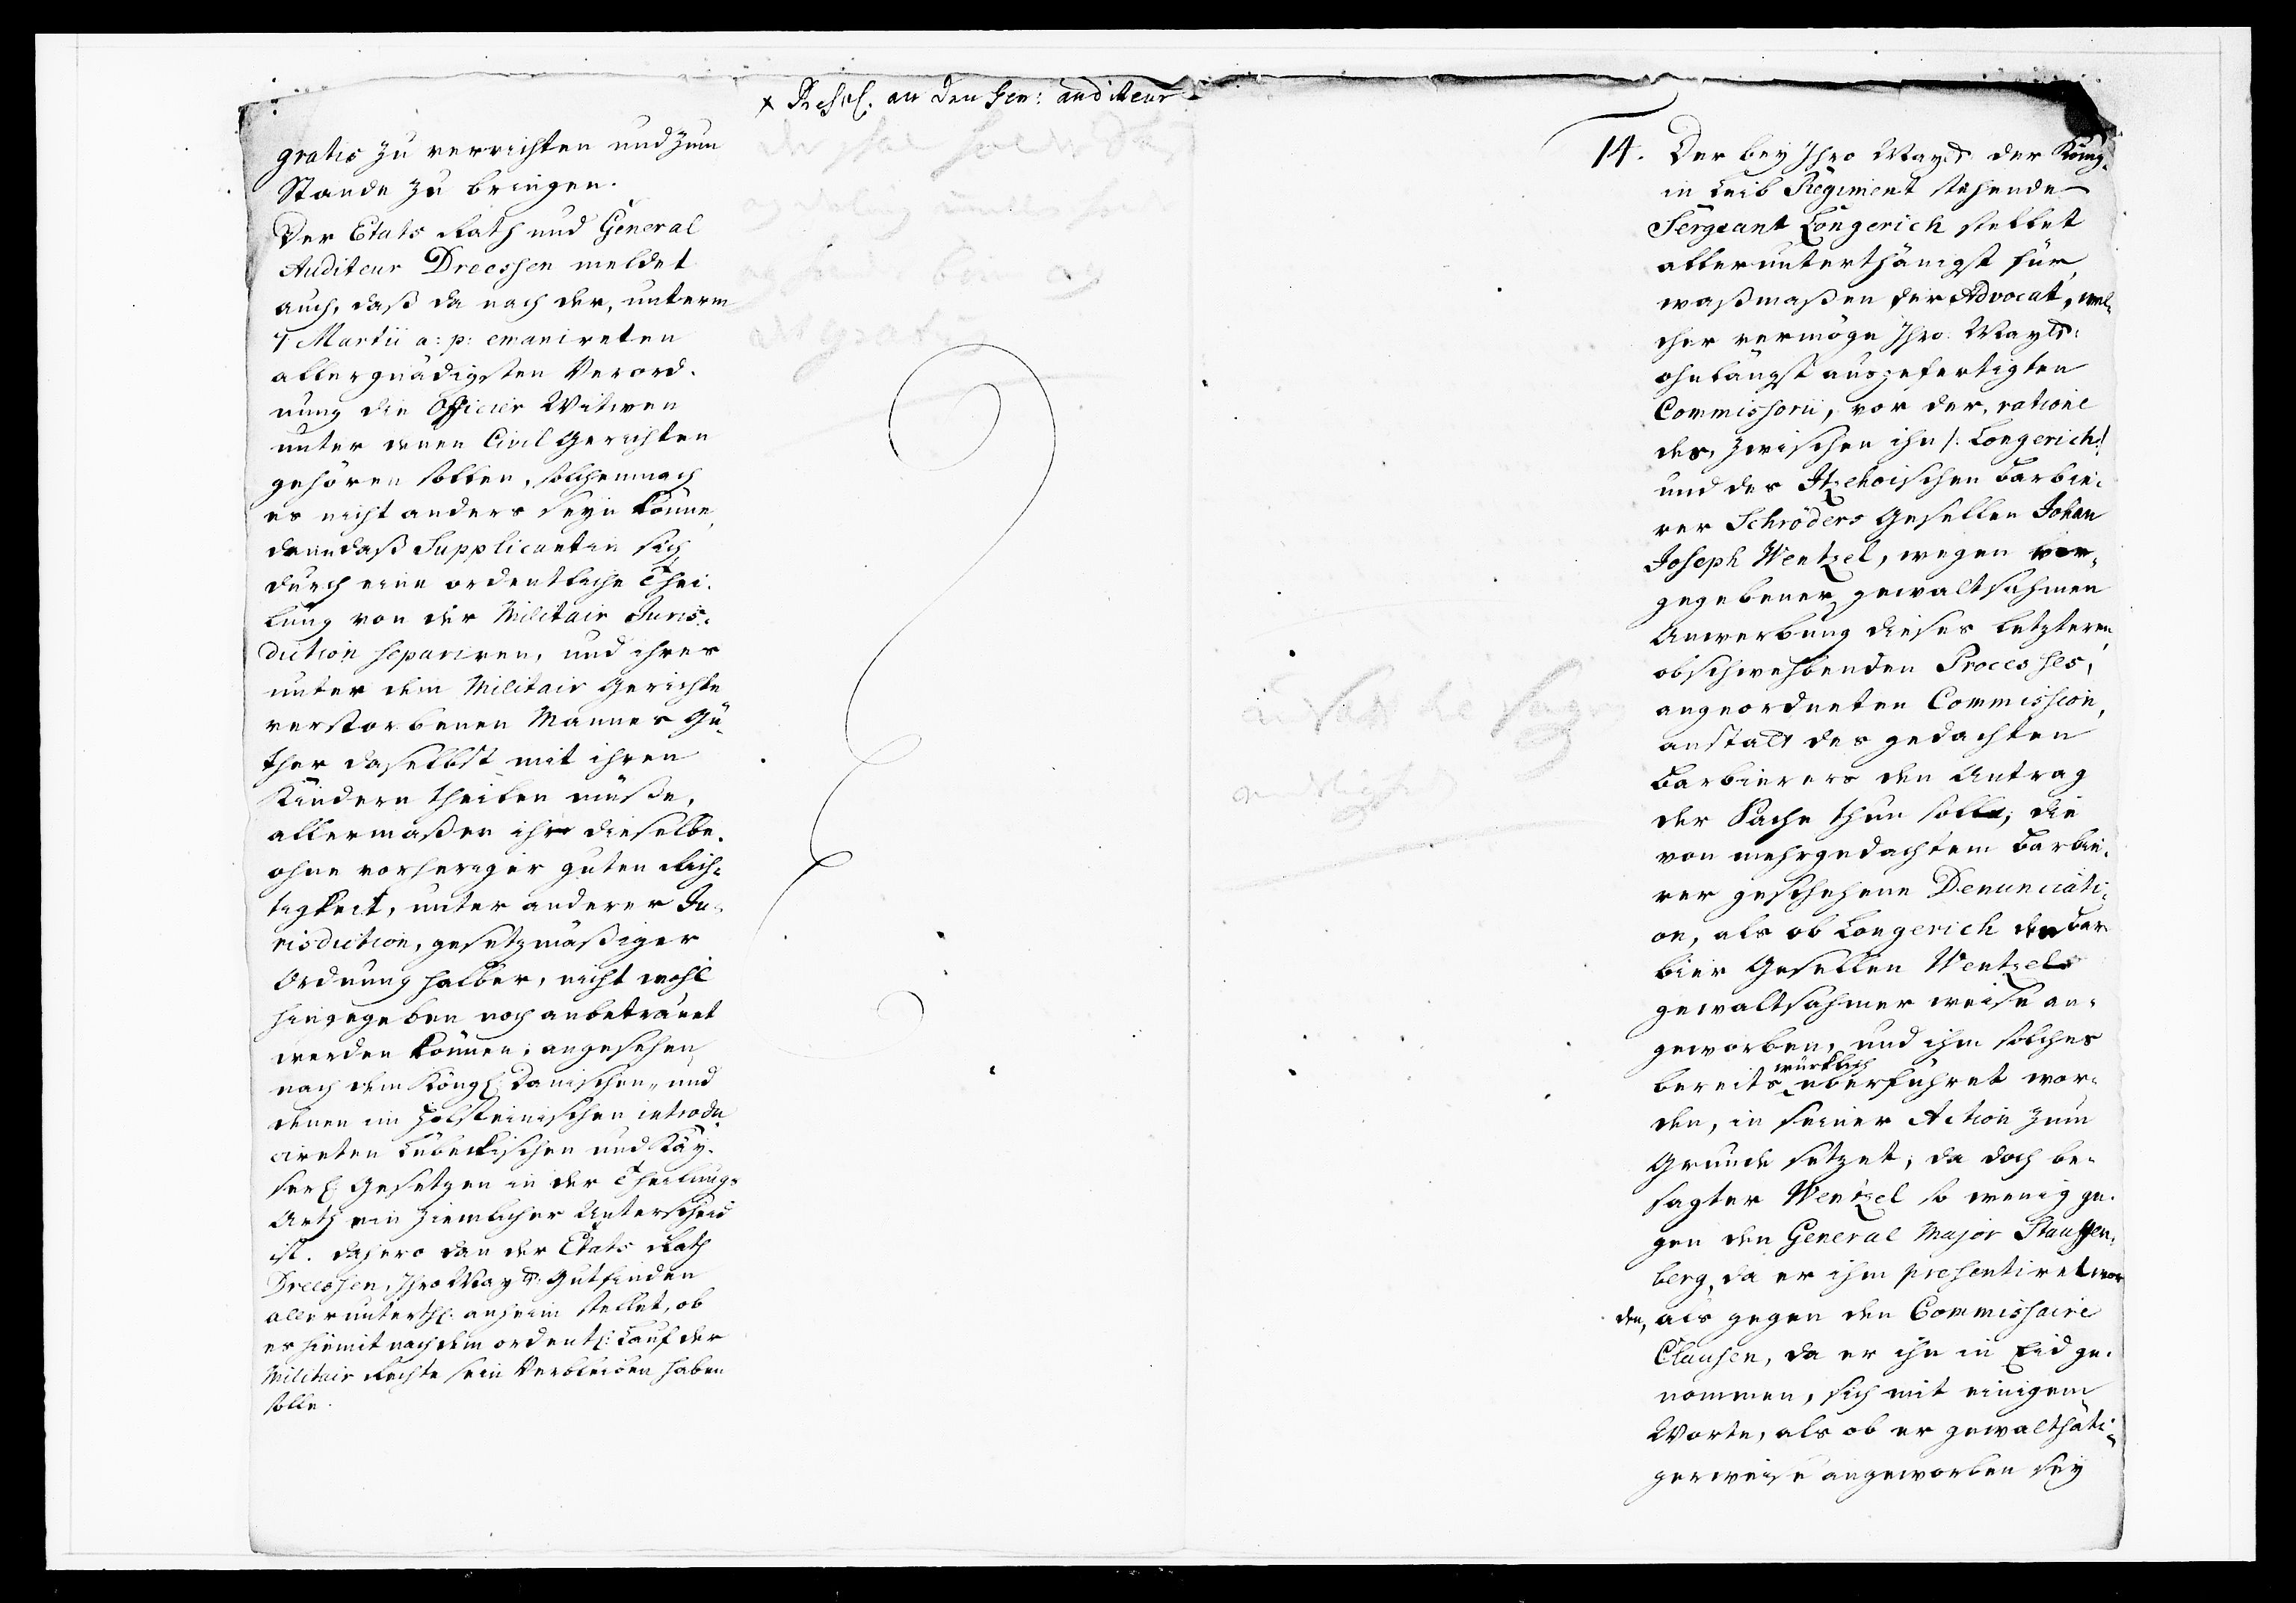 gratis zu verrichten und zum
Stande zu bringen.
Der Etats Rath und General
Auditeur Dreessen meldet
auch, daß da nach der, unterm
7 Martii a: p: emanireten
allergnädigsten Verord-
nung die Officier Witwen
unter denen Civil Gerichten
gehören sollen, solchemnach
es nicht anders seyn könne,
dann daß Supplicantin sich
durch eine ordentliche Thei-
lung von der Militair Juris-
diction separiren, und ihres
unter dem Militair Gerichte
verstorbenen Mannes Gü-
ther daselbst mit ihren
Kindern theilen müße,
allermaßen ihr dieselbe
ohne vorheriger guten Rich-
tigkeit, unter anderer Ju-
risdiction, gesetzmäßiger
Ordnung halber, nicht wohl
hingegeben noch anbetrauet
werden können; angesehen
nach dem Königl: Dänischen, und
denen im Holsteinischen introdu-
cireten Lübeckischen und Kay-
serl: Gesetzen in der Theilungs-
Arth ein ziemlicher Unterscheid
ist. dahero dan der Etats Rath
Dreessen, Ihro Mayts: Gutfinden
allerunterth: anheim stellet, ob
es hiemit nach dem ordentl: Lauf der
Militair Rechte sein Verbleiben haben
solle.
x Rescr. an den Gen: auditeur
14. Der bey Ihro Mayts der König-
in Leib Regiment stehende
Sergeant Longerich stellet
allerunterthänigst für,
waßmaßen der Advocat, wel-
cher vermöge Ihro Mayts:
ohnlängst ausgefertigten
Commissorii, vor der, ratione
des, zwischen ihn /: Longerich :/
und des Itzehoischen Barbie-
rer Schröders Gesellen Johan
Joseph Wentzel, wegen vor-
gegebener gewaltsahmen
Anwerbung dieses letzteren,
obschwehbenden Processes,
angeordneten Commission,
anstatt des gedachten
Barbierers den Antrag
der Sache thun solle, die
von mehrgedachtem Barbie-
rer geschehene Denunciati-
on, als ob Longerich den Bar-
bier Gesellen Wentzel
gewaltsahmer weise an-
geworben, und ihm solches
bereits würklich überführet wor-
den, in seiner Action zum
Grunde setzet; da doch be-
sagter Wentzel so wenig ge-
gen den General Major Stauffen-
berg, da er ihm presentiret wor
den, als gegen den Commissaire
Clausen, da er ihn in Eid ge-
nommen, sich mit einigem
Worte, als ob er gewaltthäti-
gerweise angeworben sey